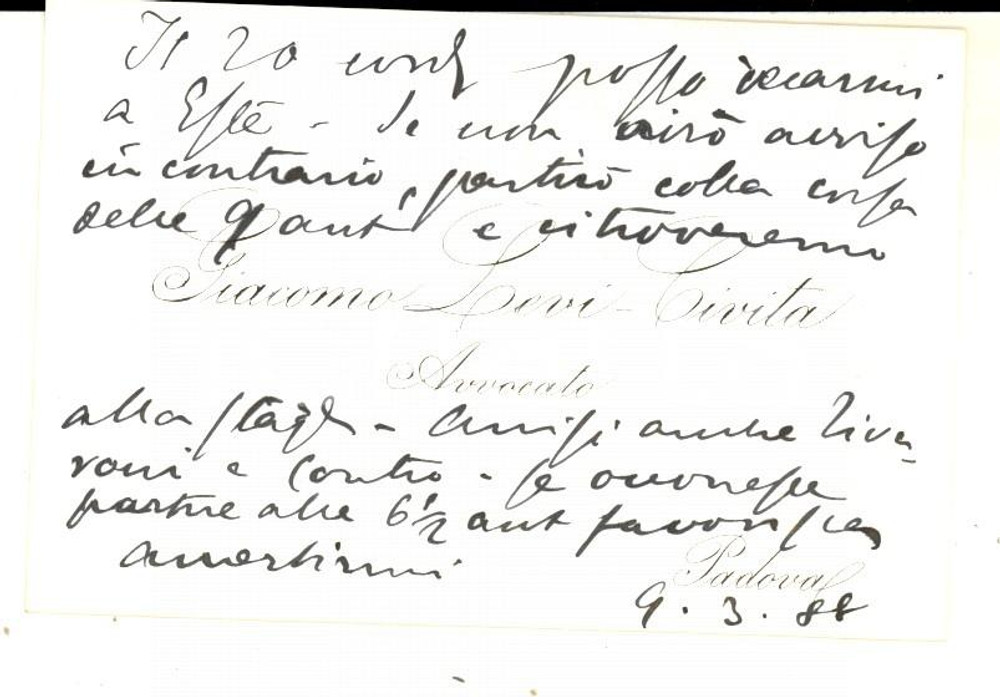 Il 20 corr posso recarmi
a Este - Se non avrò avviso
in contrario, partirò colla corsa
delle 9 ant e ci troveremo
Giacomo Levi-Civita
Avvocato
alla Staz - Avvisi anche Tiva-
roni e Contro - Se occorresse
partire alle 6 1/2 ant favorisca
avvertirmi
Padova
9. 3. 88